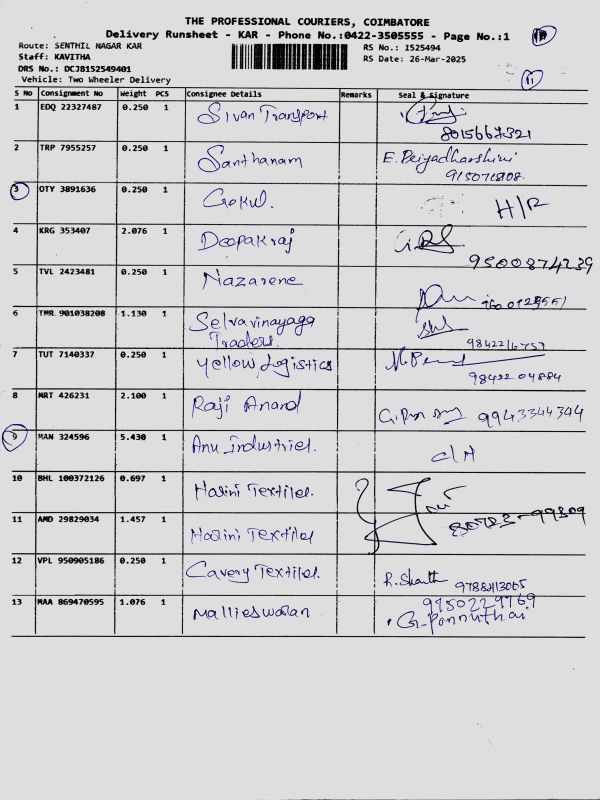 THE PROFESSIONAL COURIERS, COIMBATORE
Delivery Runsheet - KAR - Phone No.:0422-3505555 - Page No.:1
Route: SENTHIL NAGAR KAR RS No.: 1525494
Staff: KAVITHA RS Date: 26-Mar-2025
DRS No.: DCJB152549401
Vehicle: Two Wheeler Delivery 11
S No Consignment No Weight PCS Consignee Details Remarks Seal & Signature
1 EDQ 22327487 0.250 1 Sivan Transport
8015667321
2 TRP 7955257 0.250 1 Santhanam E. Peiyadharshini
3 OTY 3891636 0.250 1 Gokul. H/R
4 KRG 353407 2.076 1 Deepakraj
9500874239
5 TVL 2423481 0.250 1 Nazarene
6 TMR 901038208 1.130 1 Selvavinayaga
Traders.
7 TUT 7140337 0.250 1 Yellow Logistics
98422 04884
8 MRT 426231 2.100 1 Raji Anand 9943344344
9 MAN 324596 5.430 1 Anu Industries.
10 BHL 100372126 0.697 1 Harini Textiles.
11 AMD 29829034 1.457 1 Harini Textiles 80723-99309
12 VPL 950905186 0.250 1 Cavery Textiles.
13 MAA 869470595 1.076 1 Mallieswaran 9750229769
G. Ponnuthai